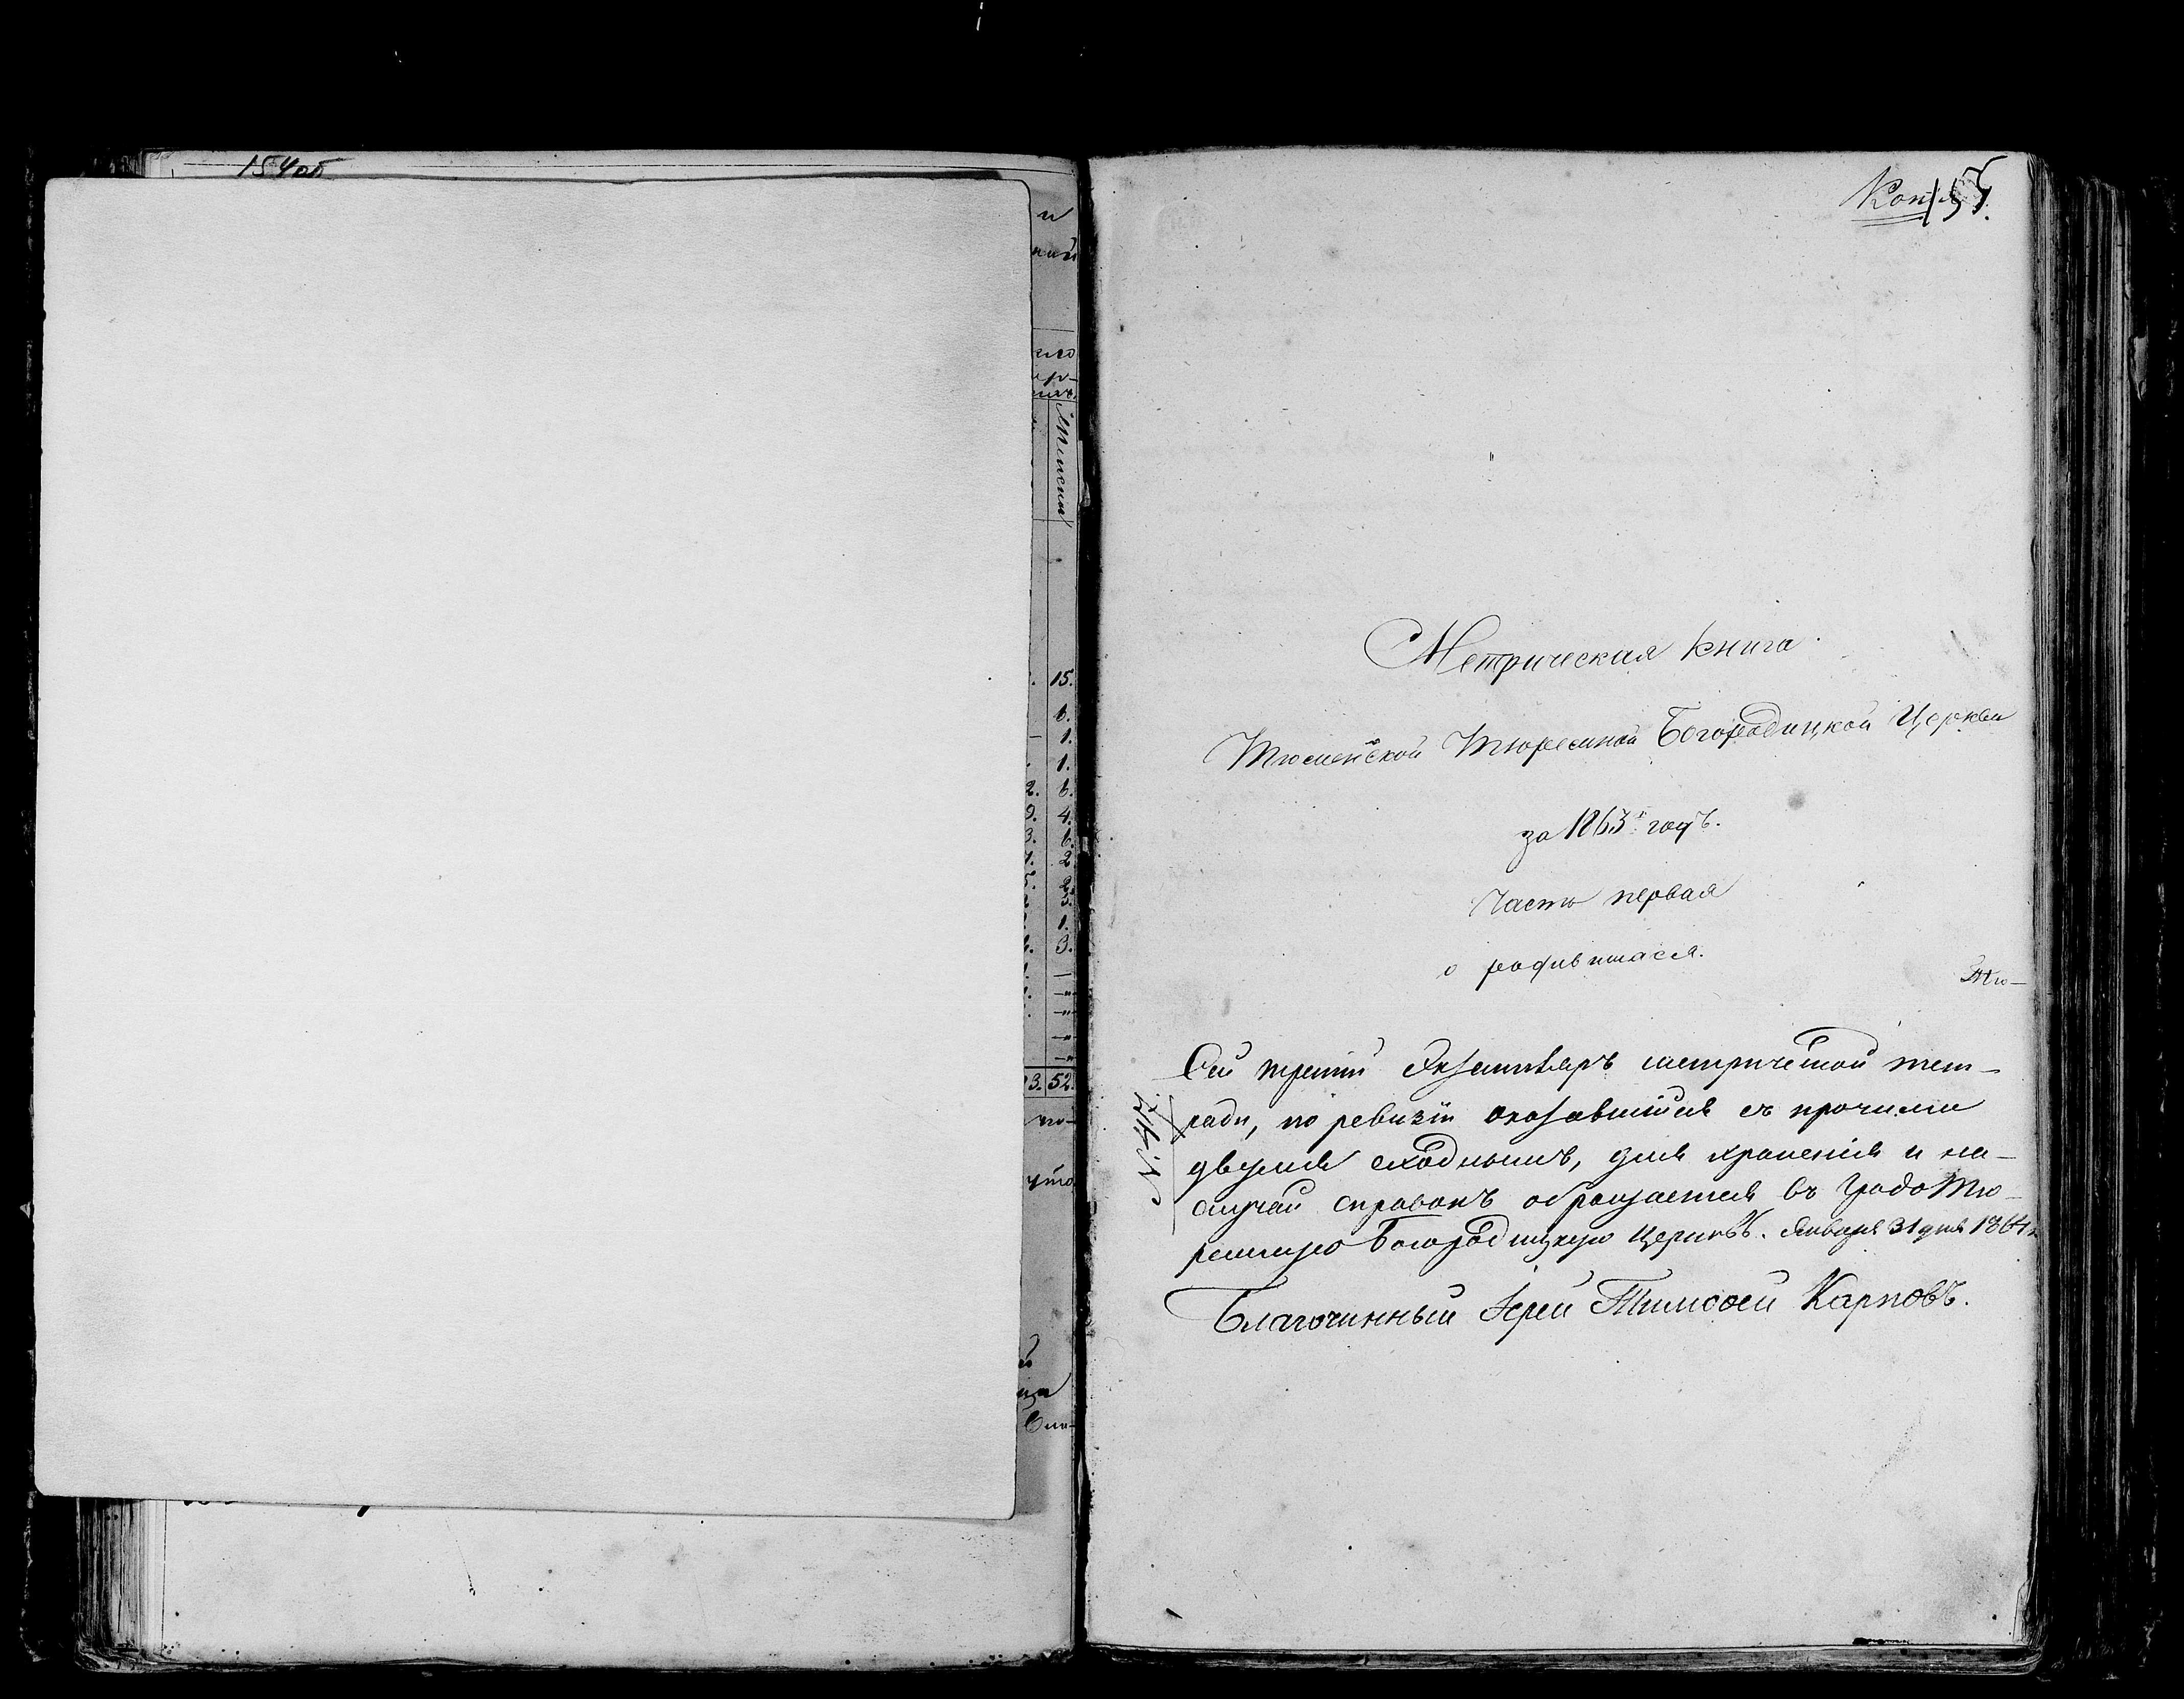 154об
Копія
155
Метрическая книга
Тюменской Тюремной Богородицкой Церкви
за 1863й годъ.
Часть первая
о родившихся.
Тю-
Сей третій Экземпляръ метрической тет-
ради, по ревизіи оказавшійся съ прочими
двумя сходнымъ, для храненія и на
случай справокъ обращается въ Градо Тю-
ремную Богородицкую Церковь. Января 31 дня 1864 г.
Благочинный Іерей Тимоѳей Карповъ.
15.
6.
1.
1.
2. 6.
9. 4.
3. 6.
2
3.
1.
9.
3. 52.